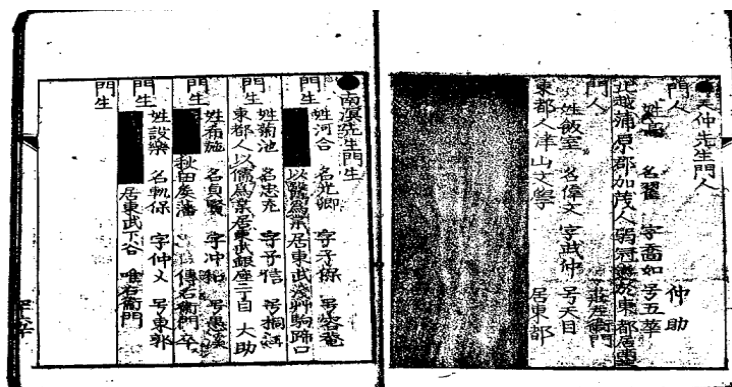 ●天仲先生門人
門人
姓高 名翟 字喬如 号五華 仲助
北越蒲原郡加茂人弱冠遊於東都居
門人
姓飯室 名偉文 字武仲 号天目
東都人津山文學 居東都
●南溟先生門生
門生
姓河合 名光卿 字子
以醫爲業居東武淺艸駒蹄口
門生
姓菊池 名忠充 字子 号桐
東都人以儒爲業居東武銀座二丁目 大助
門生
姓布施 名貞賢 字冲 号愚溪
秋田矦藩 傳右衛門 卒
門生
姓設樂 名軌保 字仲乂 号東郭
居東武下谷 唯右衛門
門生